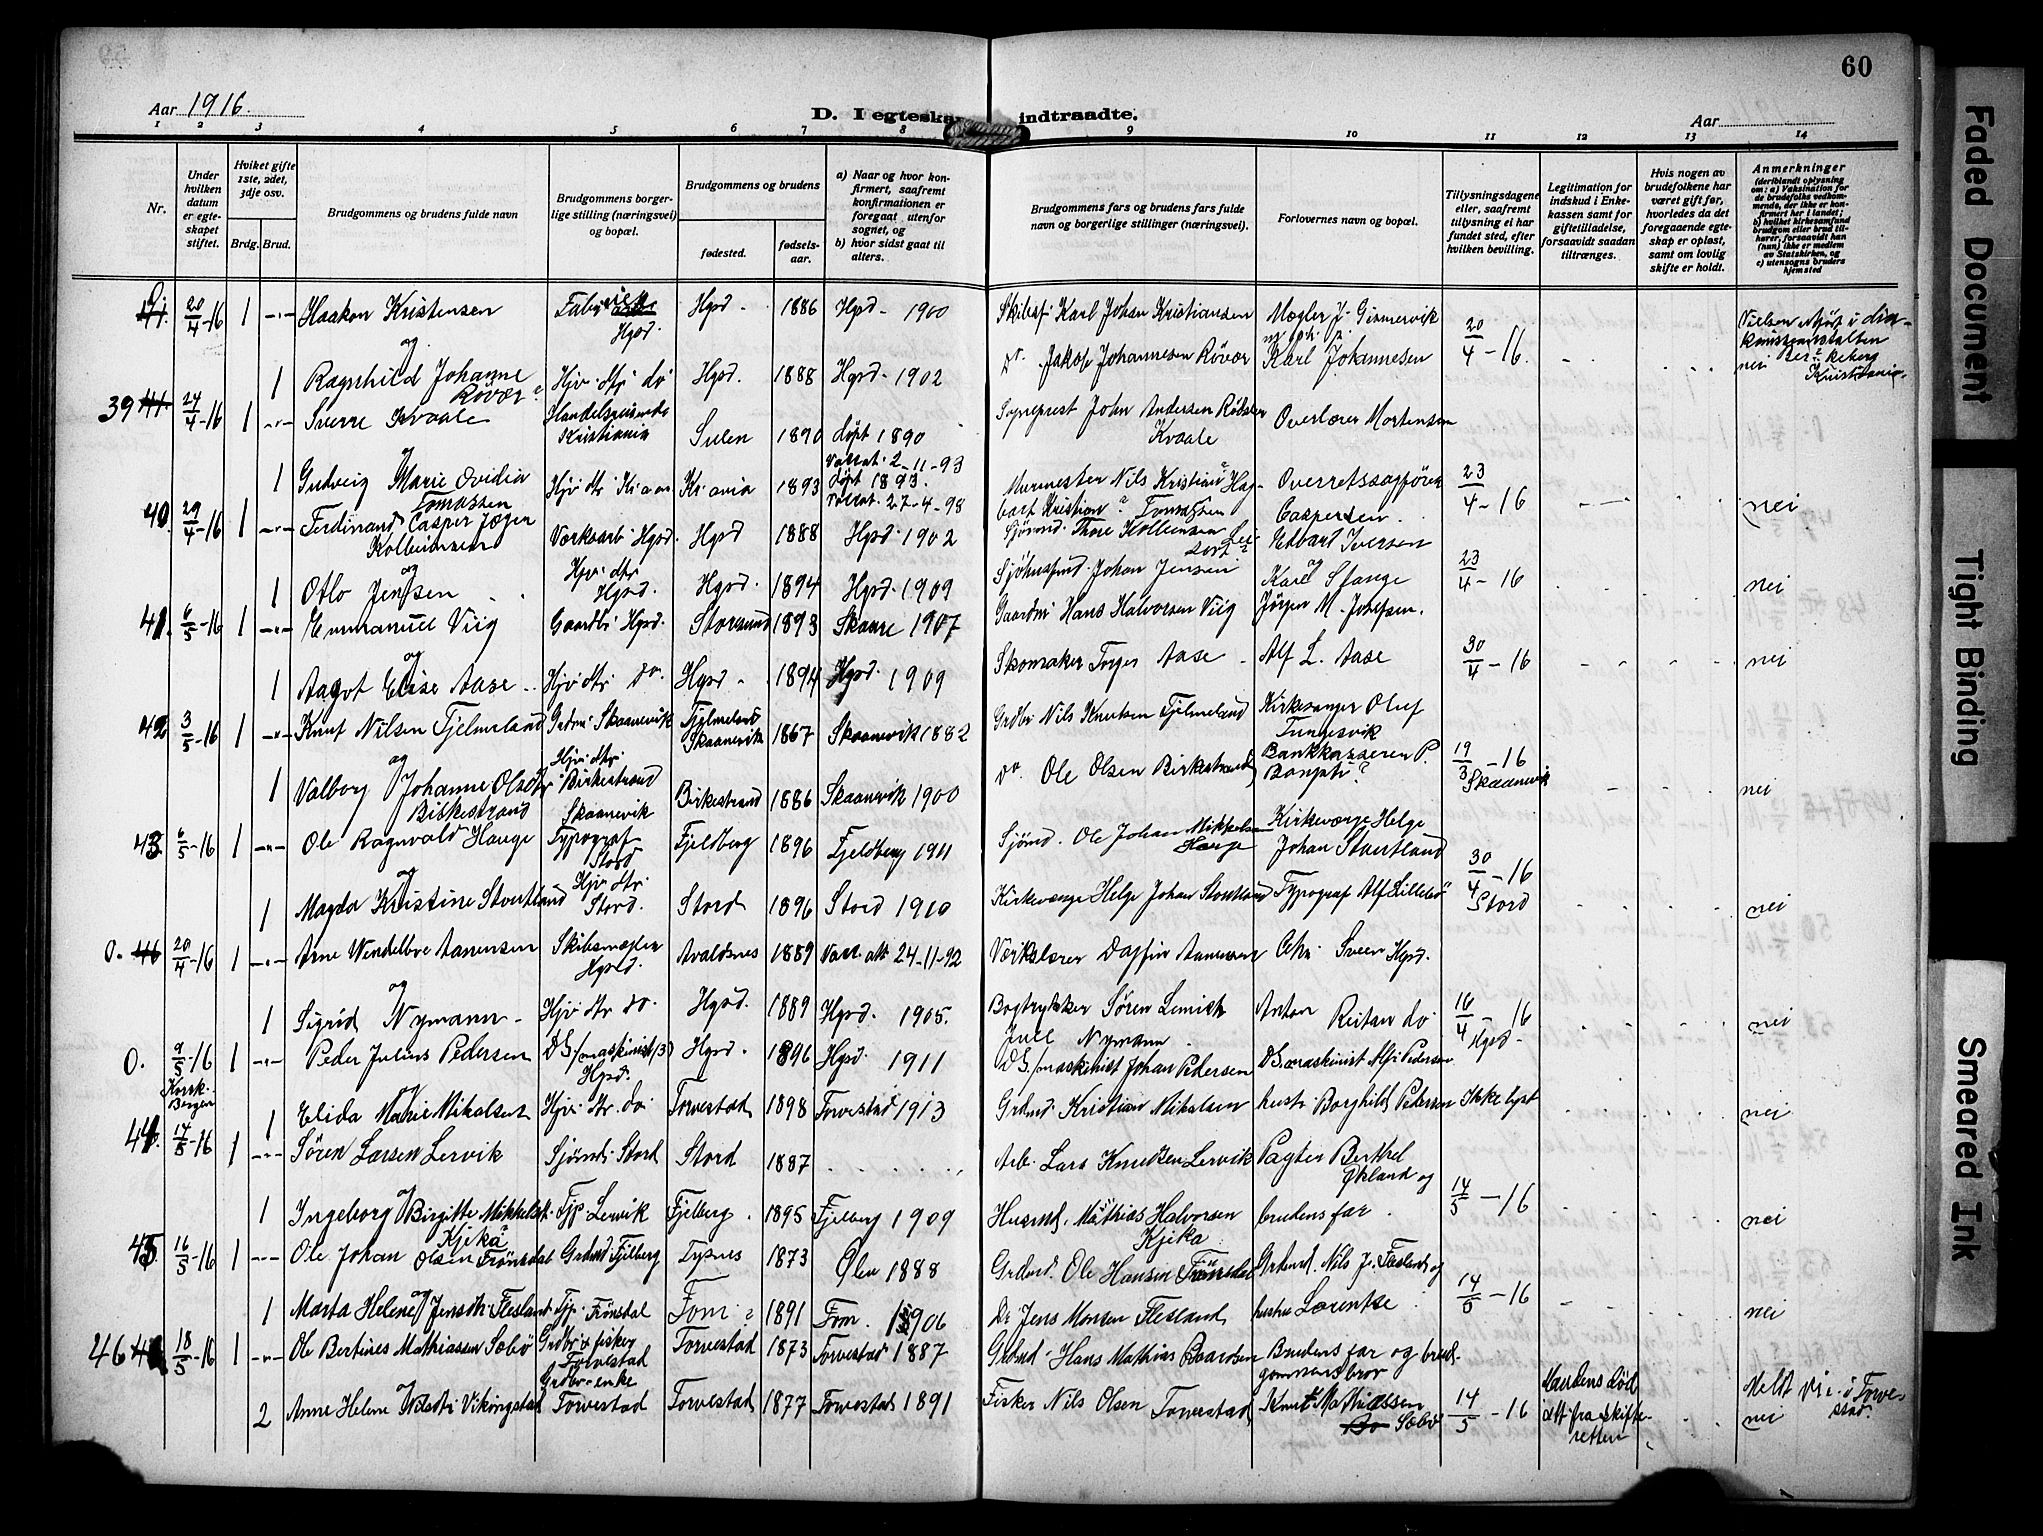 60
Aar 1916.
D. I egteskap indtraadte.
Aar
1 2 3 4 5 6 7 8 9 10 11 12 13 14
Nr.
Under hvilken datum er egteskapet stiftet.
Hvilket gifte 1ste, 2det, 3dje osv.
Brdg. Brud.
Brudgommens og brudens fulde navn
Brudgommens borgerlige stilling (næringsvei) og bopæl.
Brudgommens og brudens
fødested.
fødselsaar.
a) Naar og hvor konfirmert, saafremt konfirmationen er foregaat utenfor sognet, og
b) hvor sidst gaat til alters.
Brudgommens fars og brudens fars fulde navn og borgerlige stillinger (næringsvei).
Forlovernes navn og bopæl.
Tillysningsdagene eller, saafremt tillysning ei har fundet sted, efter hvilken bevilling.
Legitimation for indskud i Enkekassen samt for giftetilladelse, forsaavidt saadan tiltrænges.
Hvis nogen av brudefolkene har været gift før, hvorledes da det foregaaende egteskap er opløst, samt om lovlig skifte er holdt.
Anmerkninger
(deriblandt oplysning om: a) Vaksination for de brudefolks vedkommende, der ikke er konfirmert her i landet; b) hvilket kirkesamfund brudgom eller brud tilhører, forsaavidt han (hun) ikke er medlem av Statskirken, og c) utensogns bruders hjemsted
20/4-16 1 Haakon Kristensen Hgsd. 1886 Hgsd. 1900 Karl Johan Kristiansen Mægler J. Gismervik 20/4-16
og
1 Ragnhild Johanne Røvær Hjv. dtr. do Hgsd. 1888 Hgsd. 1902 Do. Jakob Johannesen Røvær Karl Johannesen nei Kristiania
39 24/4-16 1 Sverre Kvaale Kristiania Sulen 1890 døpt 1890 Sogneprest John Andersen Kvaale Overlærer Mortensen
1 Gudveig Marie Ovidia Tomassen Hjv. dtr. Kr.a Kr.ania 1893 døpt 1893. Murmester Nils Kristian Overretssagfører Caspersen 23/4-16 nei
40. 29/4-16 1 Ferdinand Casper Jæger Kolbeinsen Værksarb. Hgsd. Hgsd 1888 Hgsd. 1902 Sjømd. Thore Kolbeinsen Edvart Iversen
og
1 Otlo Jensen Hjv. dtr. Hgsd. Hgsd. 1894 Hgsd. 1909 Johan Jensen Karl Stange 23/4-16 nei
41. 6/5-16 1 Emmanuel Viig Gaardbr. Hgsd. Storesund 1893 Skaare 1907 Gaardm. Hans Halvorsen Viig Jørgen M. Josefsen.
og
1 Aagot Elise Aase Hjv. dtr. do. Hgsd. 1894 Hgsd. 1909 Skomaker Torger Aase Alf L. Aase 30/4-16 nei
42 3/5-16 1 Knut Nilsen Fjelmeland Skaanevik Fjelmeland Skaanevik 1867 Skaanevik 1882 Grdbr. Nils Knutsen Fjelmeland Kirkesanger Oluf Tungesvik
og
1 Valborg Johanne Olsdtr Birkestrand Hjv. dtr. Birkestrand Skaanevik Birkestrand 1886 Skaanevik 1900 Do Ole Olsen Birkestrand Bankkasserer P. 19/3-16 Skaanevik nei
43. 6/5-16 1 Ole Ragnvald Hauge Typograf Stord Fjeldberg 1896 Fjeldberg 1911 Sjømd. Ole Johan Mikkelsen Hauge Kirkeværge Helge Johan Stuvtland
og
1 Magda Kristine Stuvtland Hjv. dtr. Stord. Stord 1896 Stord 1910 Kirkeværge Helge Johan Stuvtland Typograf Alf Lillebø 30/4-16 Stord nei
0. 20/4-16 1 Arne Wendelboe Aanensen Skibsmægler Hgsd. Avaldsnes 1889 Vacc. att. 24-11-92 Værkslærer Dagfin Aanensen Chr. Sveen Hgsd.
og
1 Sigrid Nymann Hjv. dtr. do. Hgsd. 1889 Hgsd. 1905. Bogtrykker Søren Lemich Juell Nymann Anton Reitan do 16/4-16 Hgsd. nei
0. 9/5-16 Korsk. Bergen 1 Peder Julius Pedersen DS/maskinist (3) Hgsd. Hgsd. 1896 Hgsd. 1911 DS/maskinist Johan Pedersen DS maskinist Alf Pedersen
og
1 Elida Marie Mikalsen Hjv. dtr. do. Torvestad 1898 Torvestad 1913 Kristian Mikalsen hustr. Borghild Pedersen Ikke lyst nei
44. 14/5-16 1 Søren Larsen Lervik Sjømd. Stord Stord 1887 Arb. Lars Knudsen Lervik Pagter Berthel Økland og
og
1 Ingeborg Birgitte Mikkelsdtr. Kjika Tjp. Lervik Fjelberg 1895 Fjelberg 1909 Husmd. Mathias Halvorsen Kjika brudens far. 14/5-16 nei
45. 16/5-16 1 Ole Johan Olsen Frønsdal Grdmd Fjelberg Tysnes 1873 Ølen 1888 Grdmd. Ole Hansen Frønsdal Grdmd. Nils J. Flesland og
og
1 Marta Helene Jensdtr. Flesland Tjp. Frønsdal 1891 1906 Do. Jens Monsen Flesland hustru Laurentse 14/5-16 nei
46 18/5-16 1 Ole Bertines Mathiassen Sæbø Grdbr. & fisker Torvestad Torvestad 1873 Torvestad 1887 Hans Mathias Baardsen Brudens far og brudgommens bror
og
2 Anne Helene Nilsdtr. Vikingstad Grdbr.enke Torvestad Torvestad 1877 Torvestad 1891 Fisker Nils Olsen Torvestad Knut Mathiassen Sæbø 14/5-16 Mandens død att. fra skifteretten nei Meldt vie. i Torvestad.
Faded Document
Tight Binding
Smeared Ink